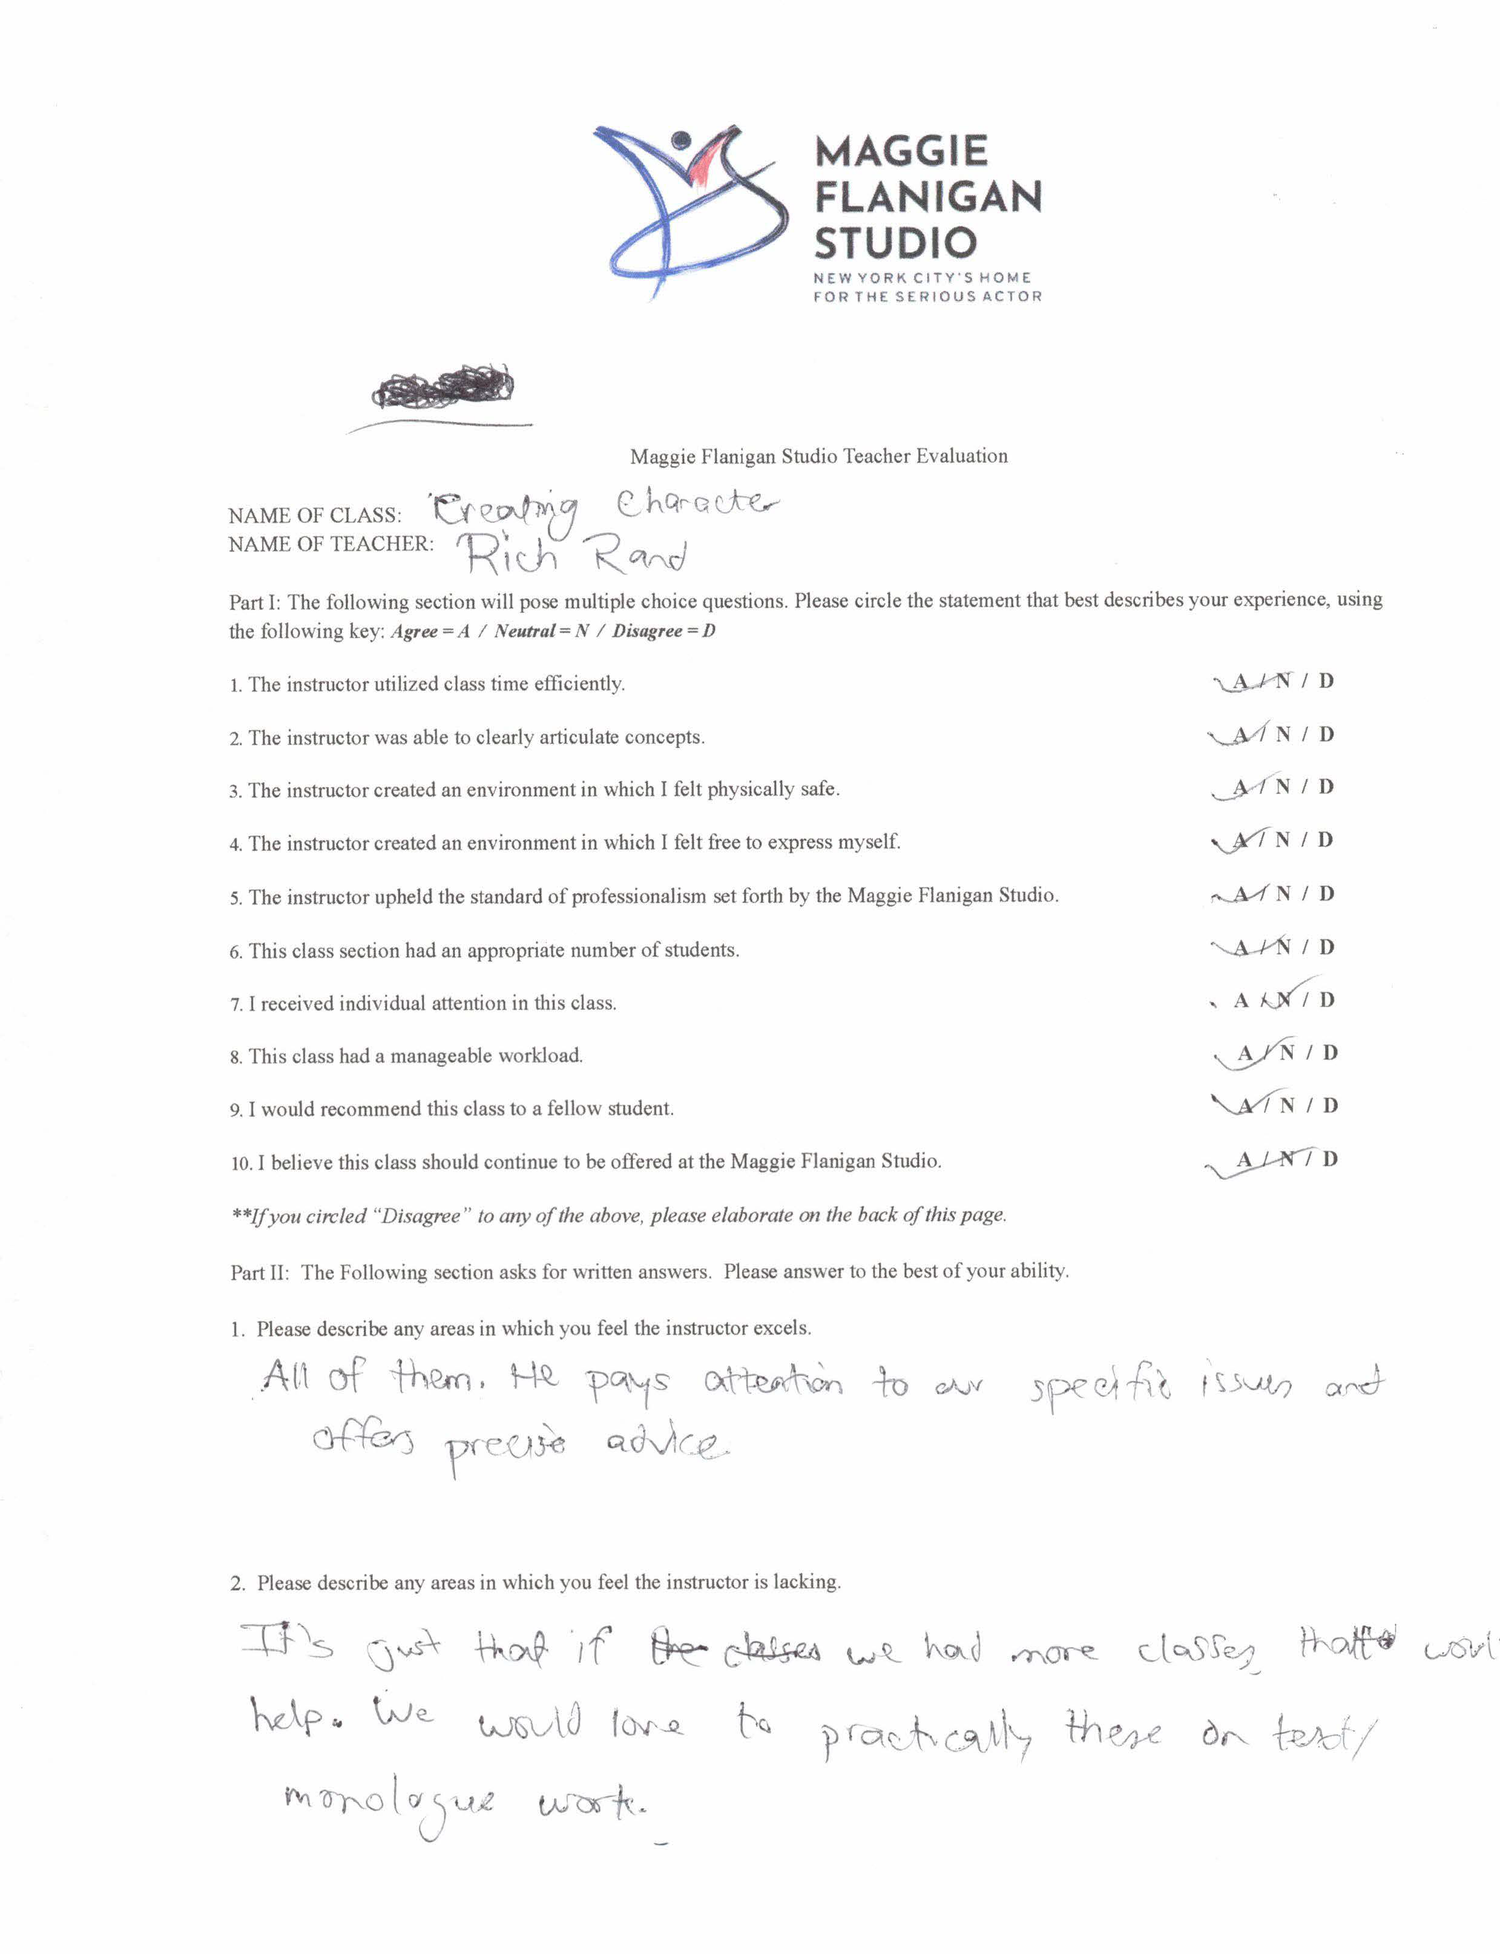 MAGGIE
FLANIGAN
STUDIO
NEW YORK CITY'S HOME
FOR THE SERIOUS ACTOR
Maggie Flanigan Studio Teacher Evaluation
NAME OF CLASS: Creating Character
NAME OF TEACHER: Rich Rand
Part I: The following section will pose multiple choice questions. Please circle the statement that best describes your experience, using
the following key: Agree = A / Neutral = N / Disagree = D
1. The instructor utilized class time efficiently. A / N / D
2. The instructor was able to clearly articulate concepts. A / N / D
3. The instructor created an environment in which I felt physically safe. A / N / D
4. The instructor created an environment in which I felt free to express myself. A / N / D
5. The instructor upheld the standard of professionalism set forth by the Maggie Flanigan Studio. A / N / D
6. This class section had an appropriate number of students. A / N / D
7. I received individual attention in this class. A / N / D
8. This class had a manageable workload. A / N / D
9. I would recommend this class to a fellow student. A / N / D
10. I believe this class should continue to be offered at the Maggie Flanigan Studio. A / N / D
**If you circled "Disagree" to any of the above, please elaborate on the back of this page.
Part II: The Following section asks for written answers. Please answer to the best of your ability.
1. Please describe any areas in which you feel the instructor excels.
All of them. He pays attention to our specific issues and
offers precise advice.
2. Please describe any areas in which you feel the instructor is lacking.
It's just that if the classes we had more classes, that woul
help. We would love to practically these on text/
monologue work.